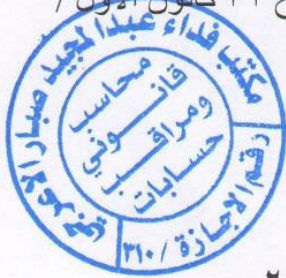 كانون الاول /
مكتب فداء عبدالمجيد صبار الاعرجي
محاسب
قانوني
ومراقب
حسابات
رقم الاجازة / ٣١٠